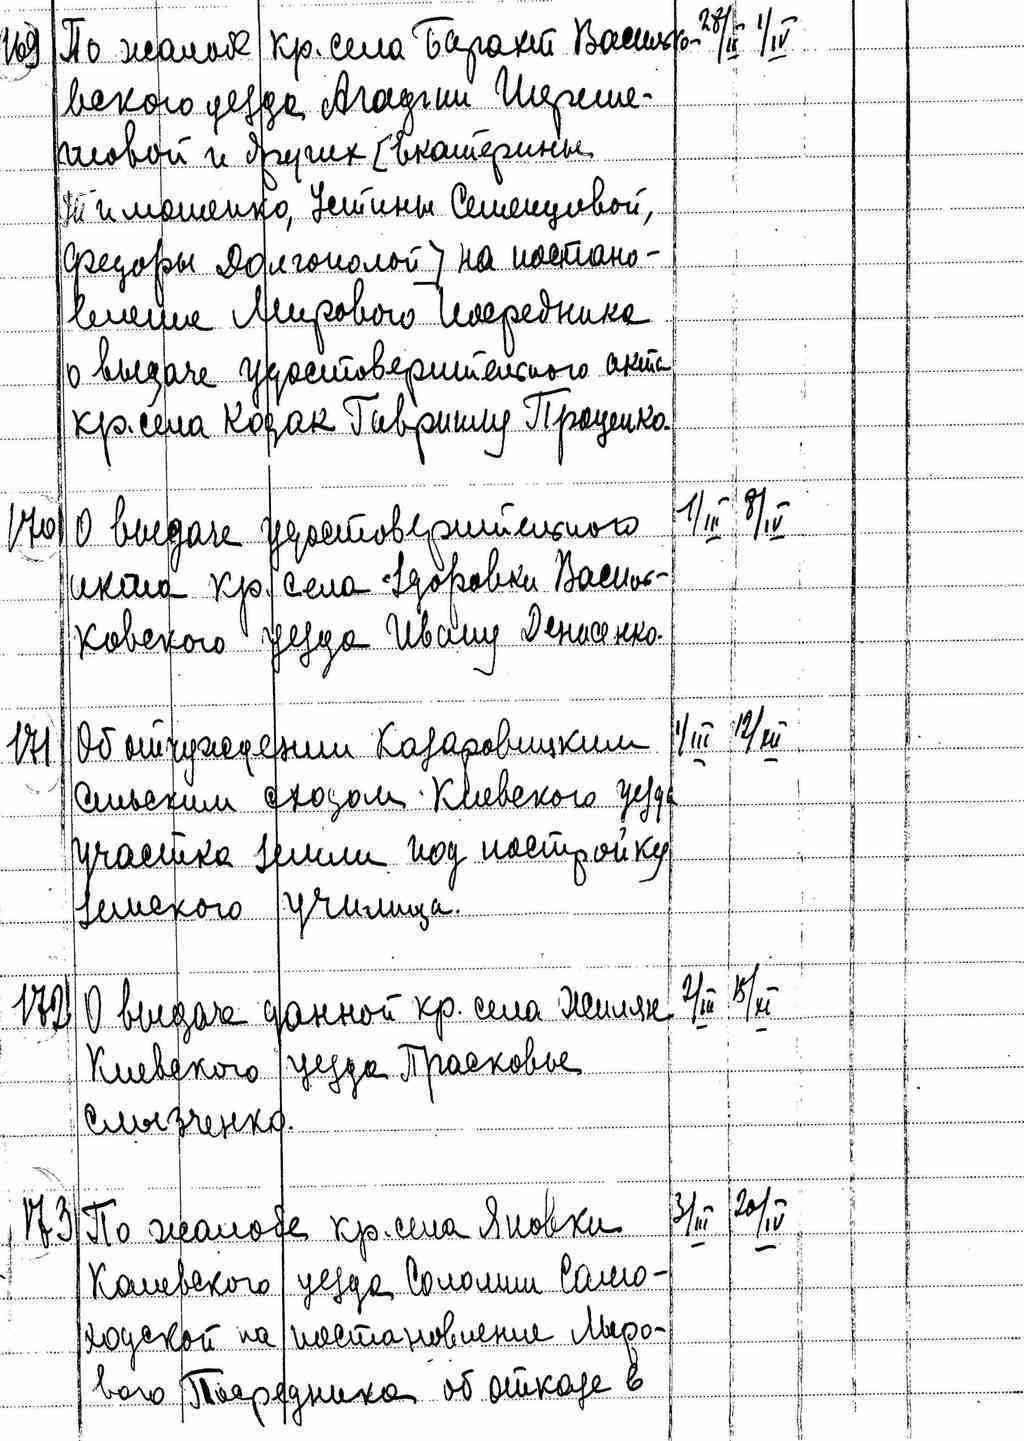 169 По жалобе кр. села Барахт Василько- 28/II 1/IV
вского уезда Агафии Шереме-
товой и других [Екатерины
Тимошенко, Устины Семенцовой,
Федоры Долгополой] на постано-
вление Мирового Посредника
о выдаче удостоверительного акта
кр. села Козак Гавриилу Проценко.
170 О выдаче удостоверительного 1/III 8/IV
акта кр. села Здоровки Василь-
ковского уезда Ивану Денисенко.
171 Об отчуждении Казаровицким 1/III 12/XII
сельским сходом Киевского уезда
участка земли под постройку
земского училища.
172 О выдаче данной кр. села Жилян 2/III 15/XI
Киевского уезда Прасковье
Слызченко.
173 По жалобе кр. села Яновки 3/III 20/IV
Каневского уезда Соломии Само-
ходской на постановление Миро-
вого Посредника об отказе в